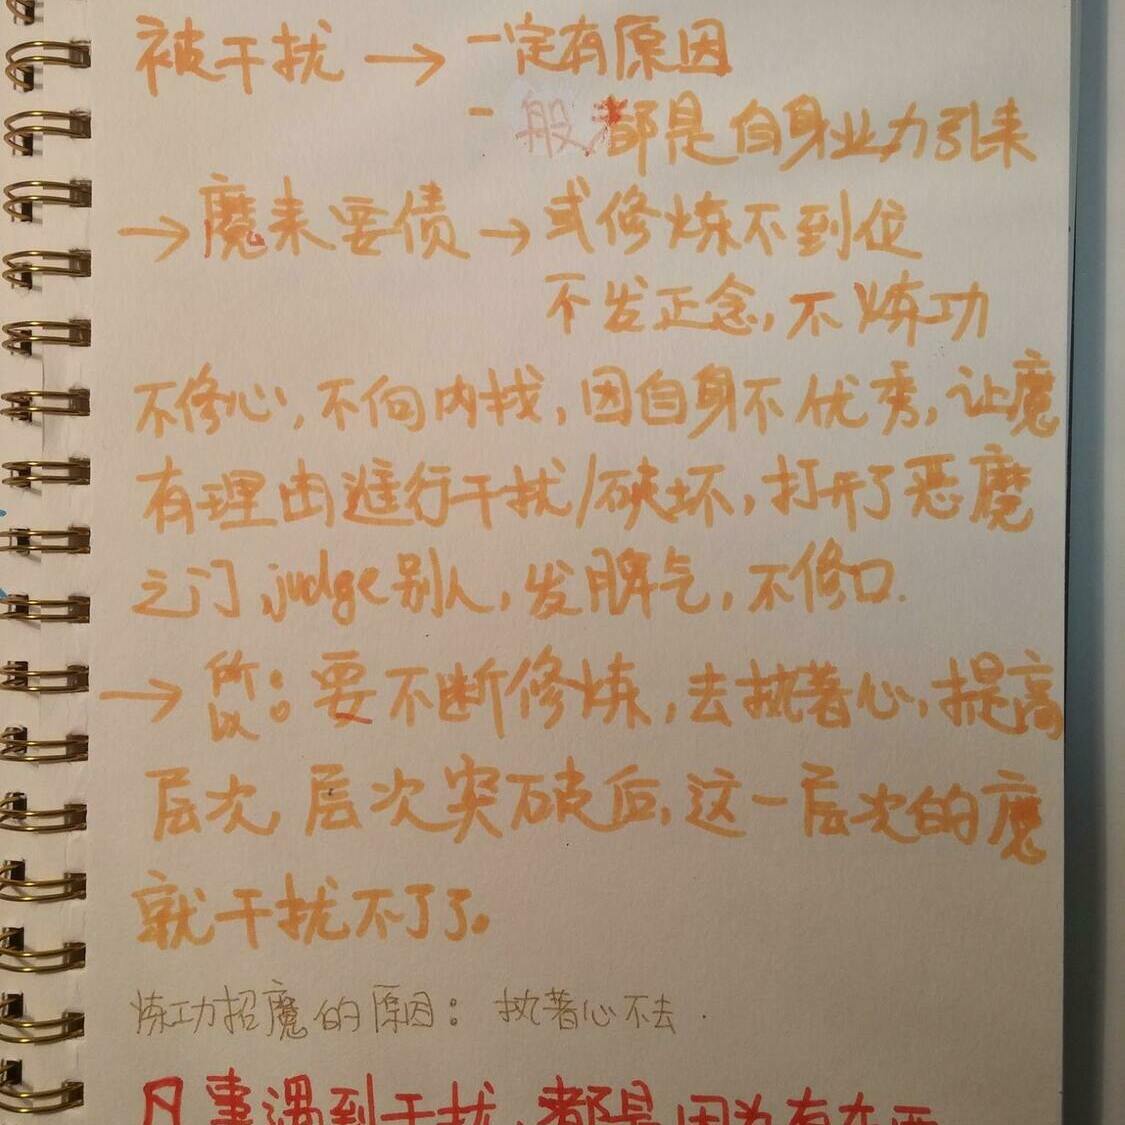 被干扰 → 一定有原因
一般都是自身业力引来
→ 魔来要债 → 或修炼不到位
不发正念, 不炼功
不修心, 不向内找, 因自身不优秀, 让魔
有理由進行干扰/破坏, 打开了恶魔
之门, judge别人, 发脾气, 不修口.
→ 所以: 要不断修炼, 去执著心, 提高
层次, 层次突破后, 这一层次的魔
就干扰不了了。
炼功招魔的原因: 执著心不去.
凡事遇到干扰, 都是因为有东西